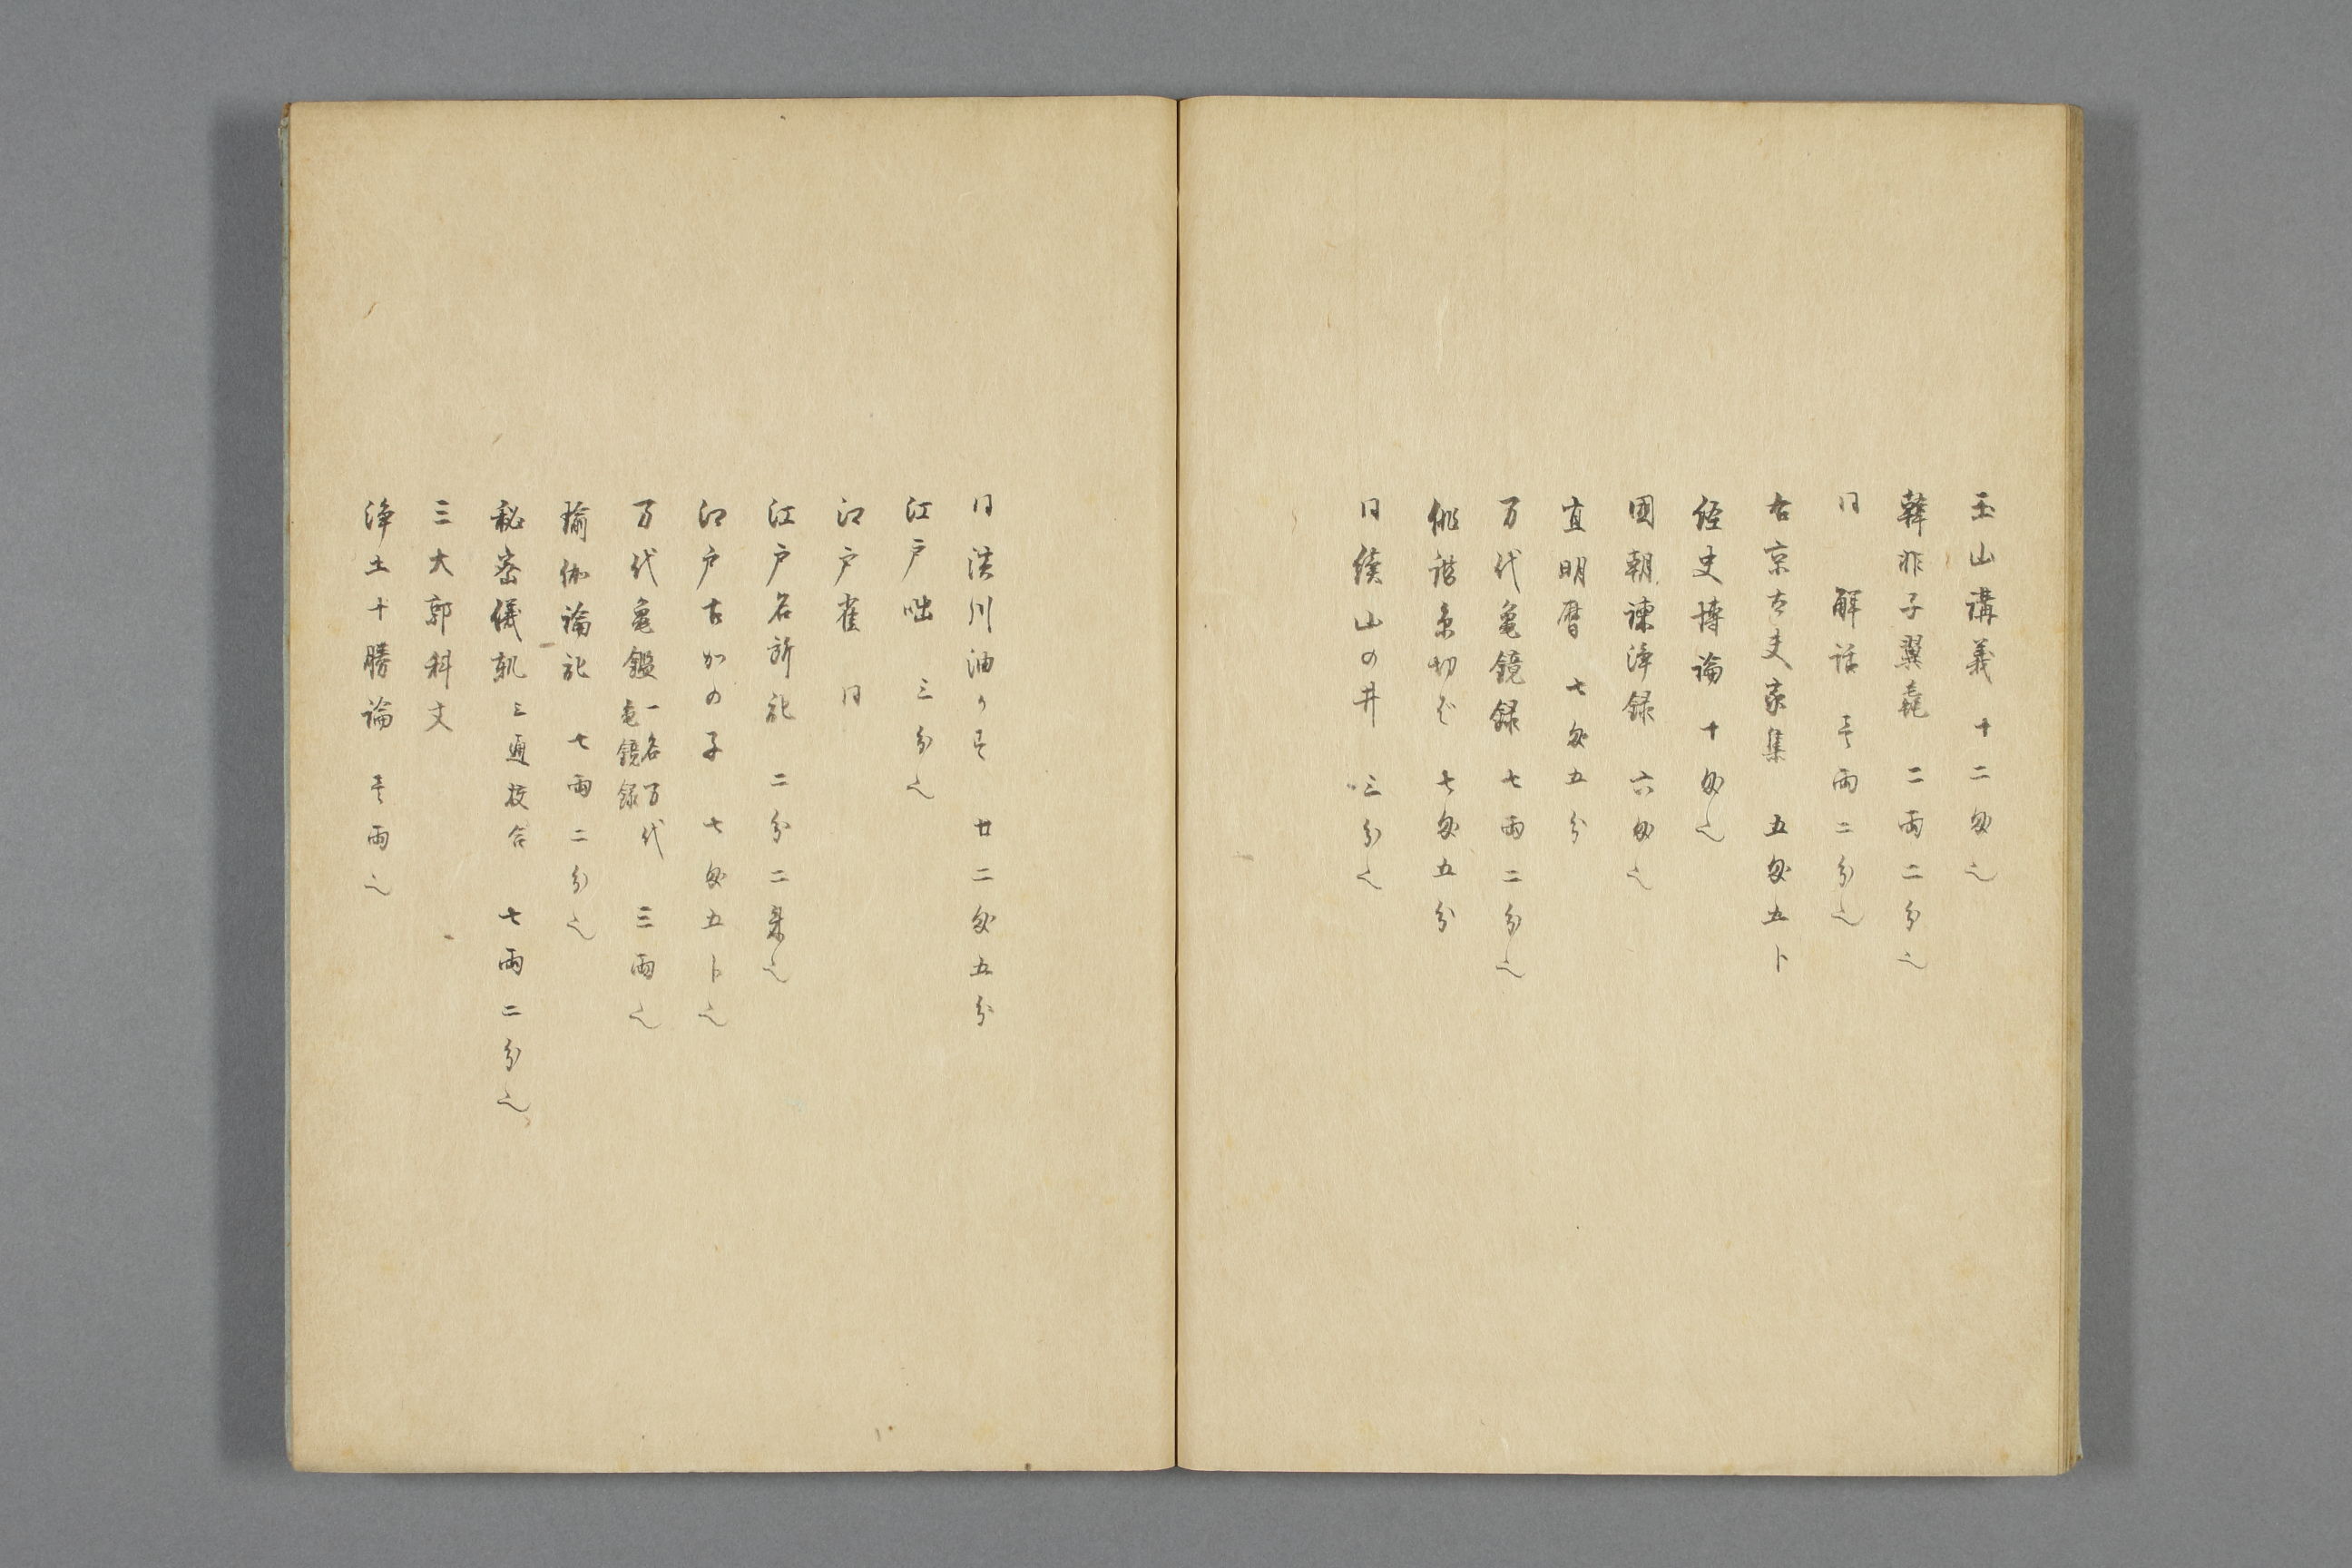 玉山講義 十二匁也
韓非子翼毳 二両二分也
同 解詁 壱両二分也
古京古史家集 五匁五卜
經史博論 十匁也
國朝諫諍録 六匁也
宣明暦 七匁五分
万代亀鏡録 七両二分也
俳諧糸切歯 七匁五分
同續山の井 三分也
同淀川油かす 廿二匁五分
江戸咄 三分也
江戸雀 同
江戸名所記 二分二朱也
江戸古かの子 七匁五卜也
万代亀鑑 一名万代亀鏡録 三両也
瑜伽論記 七両二分也
秘密儀軌 三通校合 七両二分也
三大部科文
浄土十勝論 壱両也